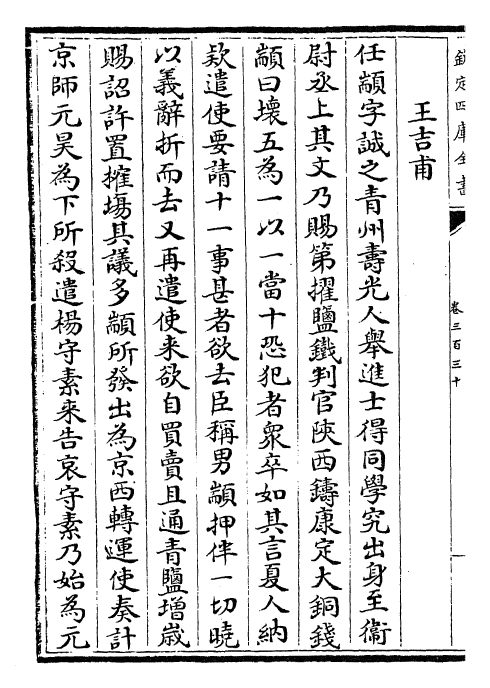 欽定四庫全書
卷三百三十
一
王吉甫
任顓字誠之青州壽光人舉進士得同學究出身至衞
尉丞上其文乃賜第擢鹽鐵判官陝西鑄康定大銅錢
顓曰壞五為一以一當十恐犯者衆卒如其言夏人納
欵遣使要請十一事甚者欲去臣稱男顓押伴一切曉
以義辭折而去又再遣使来欲自買賣且通青鹽增歳
賜詔許置搉塲其議多顓所發出為京西轉運使奏計
京師元昊為下所殺遣楊守素来告哀守素乃始為元